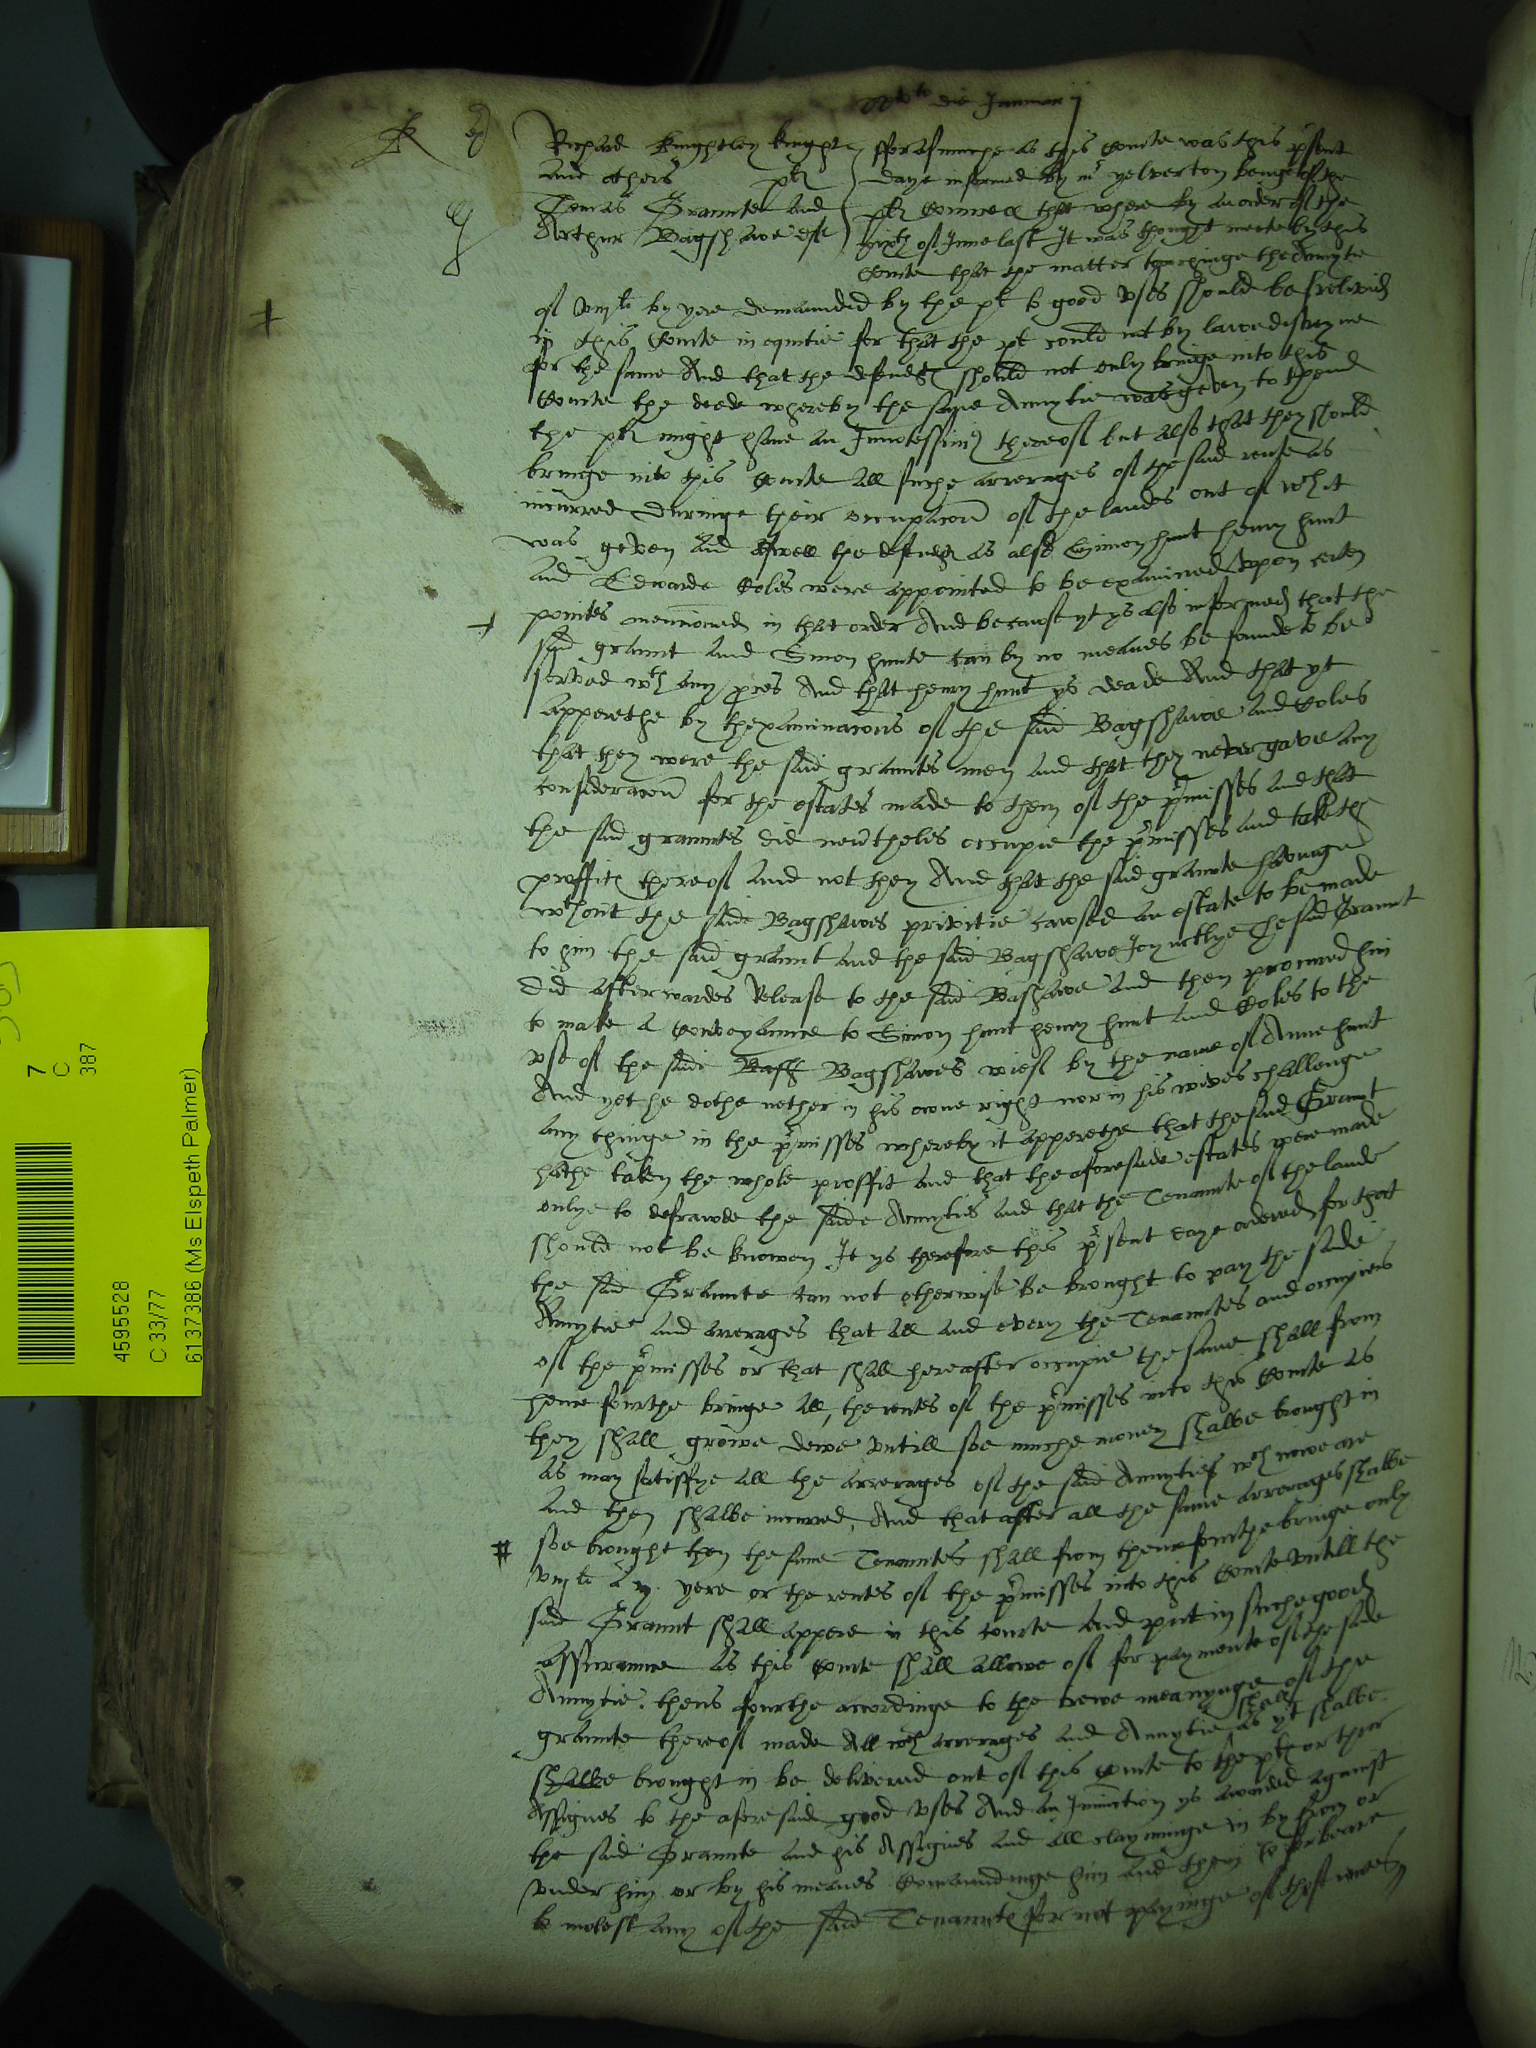 die Januarij
Richard Knightley knight
and others plt
Tomas Graunte and
Arthur Bagshawe def
fforasmuche as this Courte was this psent
daye informed by mr yelverton beinge of the
plt Councell that where by an order of the
sixth of June last It was thought meete by this
Courte that the matter towchinge the Annytie
of viij li by yere demaunded by the plt to good vses should be releived
in this Courte in equitie for that the plt could not by lawe distreyne
for the same And that the defendt should not only bringe into this
Courte the deede whereby the same Annytie was geven to thend
the plt might have an Innotessimus thereof but also that they should
bringe into this Courte all suche arrerages of the said rente as
incurred duringe their occupacon of the landes out of wch it
was geven And aswell the defendt as also Simon hunt henry hunt
and Edwarde Coles were appointed to be examined vpon certen
pointes mencioned in that order And because yt ys also informed that the
said graunt and Simon hunte can by no meanes be founde to be
served wth any pces And that henry hunt ys deade And that yt
apperethe by thexaminacons of the said Bagshawe and Coles
that they were the said grauntes men and that they never gave any
consideracon for the estates made to them of the pmisses and that
the said grauntes did nevtheles occupie the pmisses and take the
proffitt thereof and not they And that the said graunte havinge
wthout the saide Bagshawes privitie cawsed an estate to be made
to him the said graunt and the said Bagshawe Joynctlye The said Graunt
did afterwardes Release to the said Bashawe and then procured him
to make a Conveyaunce to Simon hunt henry hunt and Coles to the
vse of the saide Bagshawes wief by the name of Anne hunt
And yet he dothe nether in his owne right nor in his wives challenge
any thinge in the pmisses whereby it apperethe that the said Graunt
hathe taken the whole proffit and that the aforesaide estates were made
onlye to defrawde the saide Annyties and that the Tenaunte of the lande
should not be knowen It ys therefore this psent daye ordered for that
the said Graunte can not otherwise be brought to pay the saide
Annytie and arrerages that all and every the Tenauntes and occupiers
of the pmisses or that shall hereafter occupie the same shall from
hence fourthe bringe all the rentes of the pmisses into this Courte as
they shall growe dewe vntill soe muche money shalbe brought in
as may satisffye all the arrerages of the said Annyties wch nowe are
and then shalbe incurred, And that after all the same arrerages shalbe
soe brought then the same Tenauntes shall from thencefourthe bringe only
viij li a yere or the rentes of the pmisses into this Courte vntill the
said Graunt shall appere in this courte and put in suche good
assuraunce as this Courte shall allowe of for paymente of the saide
Annytie thens fourthe accordinge to the trewe meanynge of the
graunte thereof made All wch arrerages and Annytie shall as yt shalbe
shalbe brought in be delivered out of this Courte to the plt or ther
Assignes to the aforesaide good vses And an Iniunction ys awarded against
the said Graunte and his Assignes and all clayminge in by from or
vnder him or by his meanes Comaundinge him and them to forbeare
to molest any of the said Tenauntes for not payinge of those rentes
7
C
387
4595528
C 33/77
6137386 (Ms Elspeth Palmer)